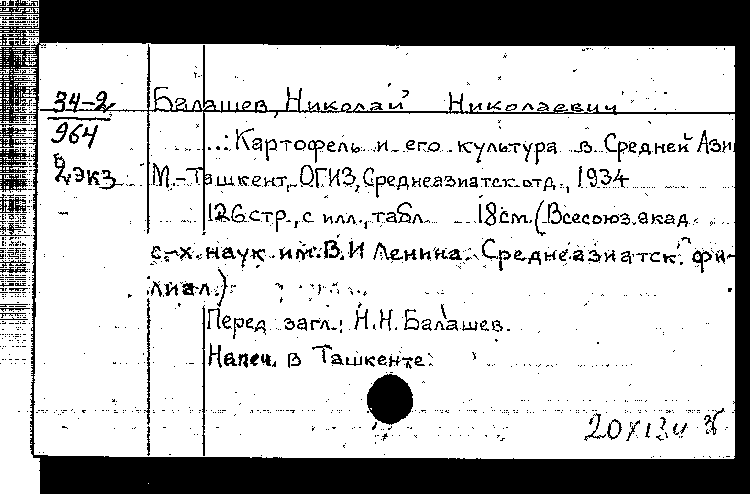 34-2 Балашев, Николай Николаевич
964 ...: Картофель и его культура в Средней Ази
в 2 экз М.-Ташкент, ОГИЗ, Среднеазиатск. отд., 1934
126 стр., с илл., табл. 18 см. (Всесоюз. акад.
с-х. наук им. В.И Ленина. Среднеазиатск. фи-
лиал.)
Перед загл.: Н.Н. Балашев.
Напеч. в Ташкенте.